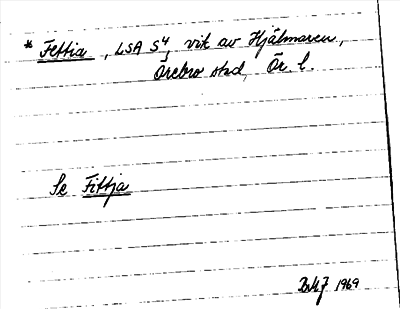 * Fettia, LSA S4, vik av Hjälmaren,
Örebro stad, Ör. l.
Se Fittja
1969